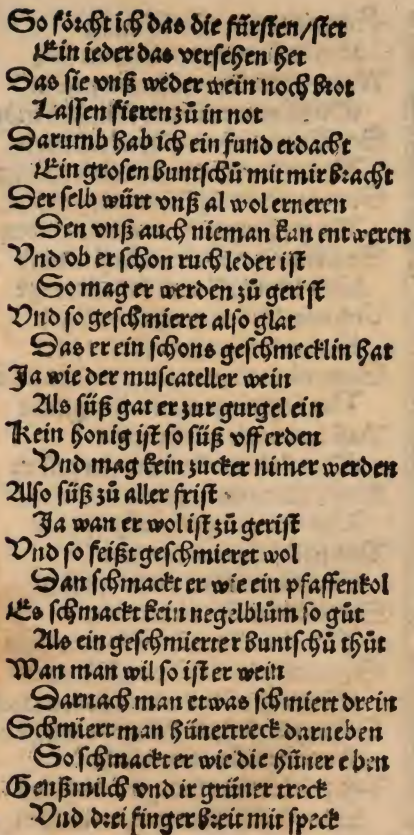 So förcht ich das die fürsten/stet
Ein ieder das versehen het
Das sie vnß weder wein noch brot
Lassen fieren zů in not
Darumb hab ich ein fund erdacht
Ein grosen buntschů mit mir bracht
Der selb würt vnß al wol erneren
Den vnß auch nieman kan entweren
Vnd ob er schon ruch leder ist
So mag er werden zů gerist
Vnd so geschmieret also glat
Das er ein schons geschmecklin hat
Ja wie der muscateller wein
Als süß gat er zur gurgel ein
Kein honig ist so süß vff erden
Vnd mag kein zucker nimer werden
Also süß zů aller frist
Ja wan er wol ist zů gerist
Vnd so feißt geschmieret wol
Dan schmackt er wie ein pfaffenkol
Es schmackt kein negelblům so gůt
Als ein geschmierter buntschů thůt
Wan man wil so ist er wein
Darnach man etwas schmiert drein
Schmiert man hünertreck darneben
So schmackt er wie die hüner eben
Genßmilch vnd ir grüner treck
Vnd drei finger breit mit speck